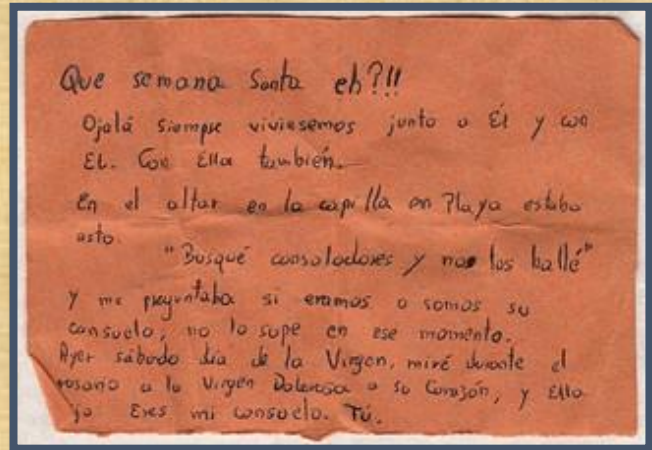 Que semana Santa eh?!!
Ojalá siempre viviesemos junto a Él y con
Él. Con Ella también.
En el altar en la capilla en Playa estaba
esto.
"Busqué consoladores y no los hallé"
y me preguntaba si eramos o somos su
consuelo, no lo supe en ese momento.
Ayer sábado día de la Virgen, miré durante el
rosario a la Virgen Dolorosa a su Corazón, y Ella
jo Eres mi consuelo. Tú.